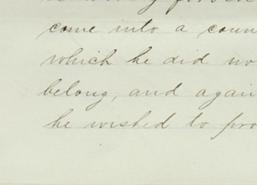 come into a coun
which he did no
belong, and again
he wished to pro